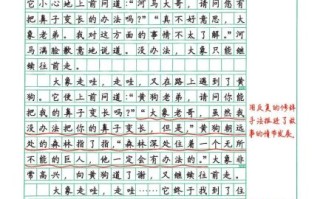 它小心地上前问道：“河马大哥，请问您有
把我的鼻子变长的办法吗？”“真不好意思，大
象老弟。我对这方面的事情不太了解。”河
马满脸歉意地说道。大象没办法，大象只能继
续往前走。
大象走哇，走哇，又在路上遇到了黄
狗。它便上前问道：“黄狗老弟，请问你能
把我的鼻子变长吗？”“大象老哥，虽然我
没办法把你的鼻子变长，但是，”黄狗朝远
处的森林指了指：“森林深处住着一个无所
不能的巨人，他一定会有办法的。”大象非
常高兴，向黄狗致了谢，又继续往前走。
大象走哇，走哇……它终于找到了住
用反复的修辞
手法推进了故
事的情节发展。